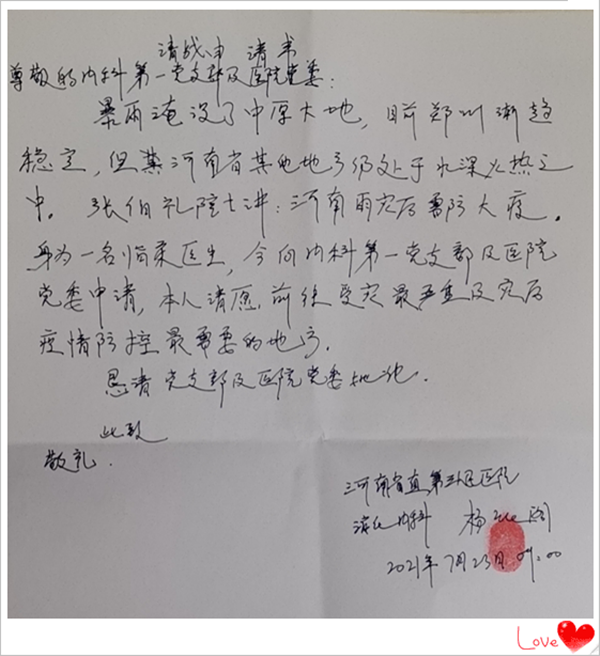 请战申请书
尊敬的内科第一党支部及医院党委：
暴雨淹没了中原大地，目前郑州渐趋
稳定，但其河南省其他地方仍处于水深火热之
中。张伯礼院士讲：河南雨灾后需防大疫。
身为一名临床医生，今向内科第一党支部及医院
党委申请，本人请愿前往受灾最严重及灾后
疫情防控最需要的地方。
恳请党支部及医院党委批准。
此致
敬礼．
河南省直第三人民医院
消化内科 杨
2021年7月23日 09:00
Love